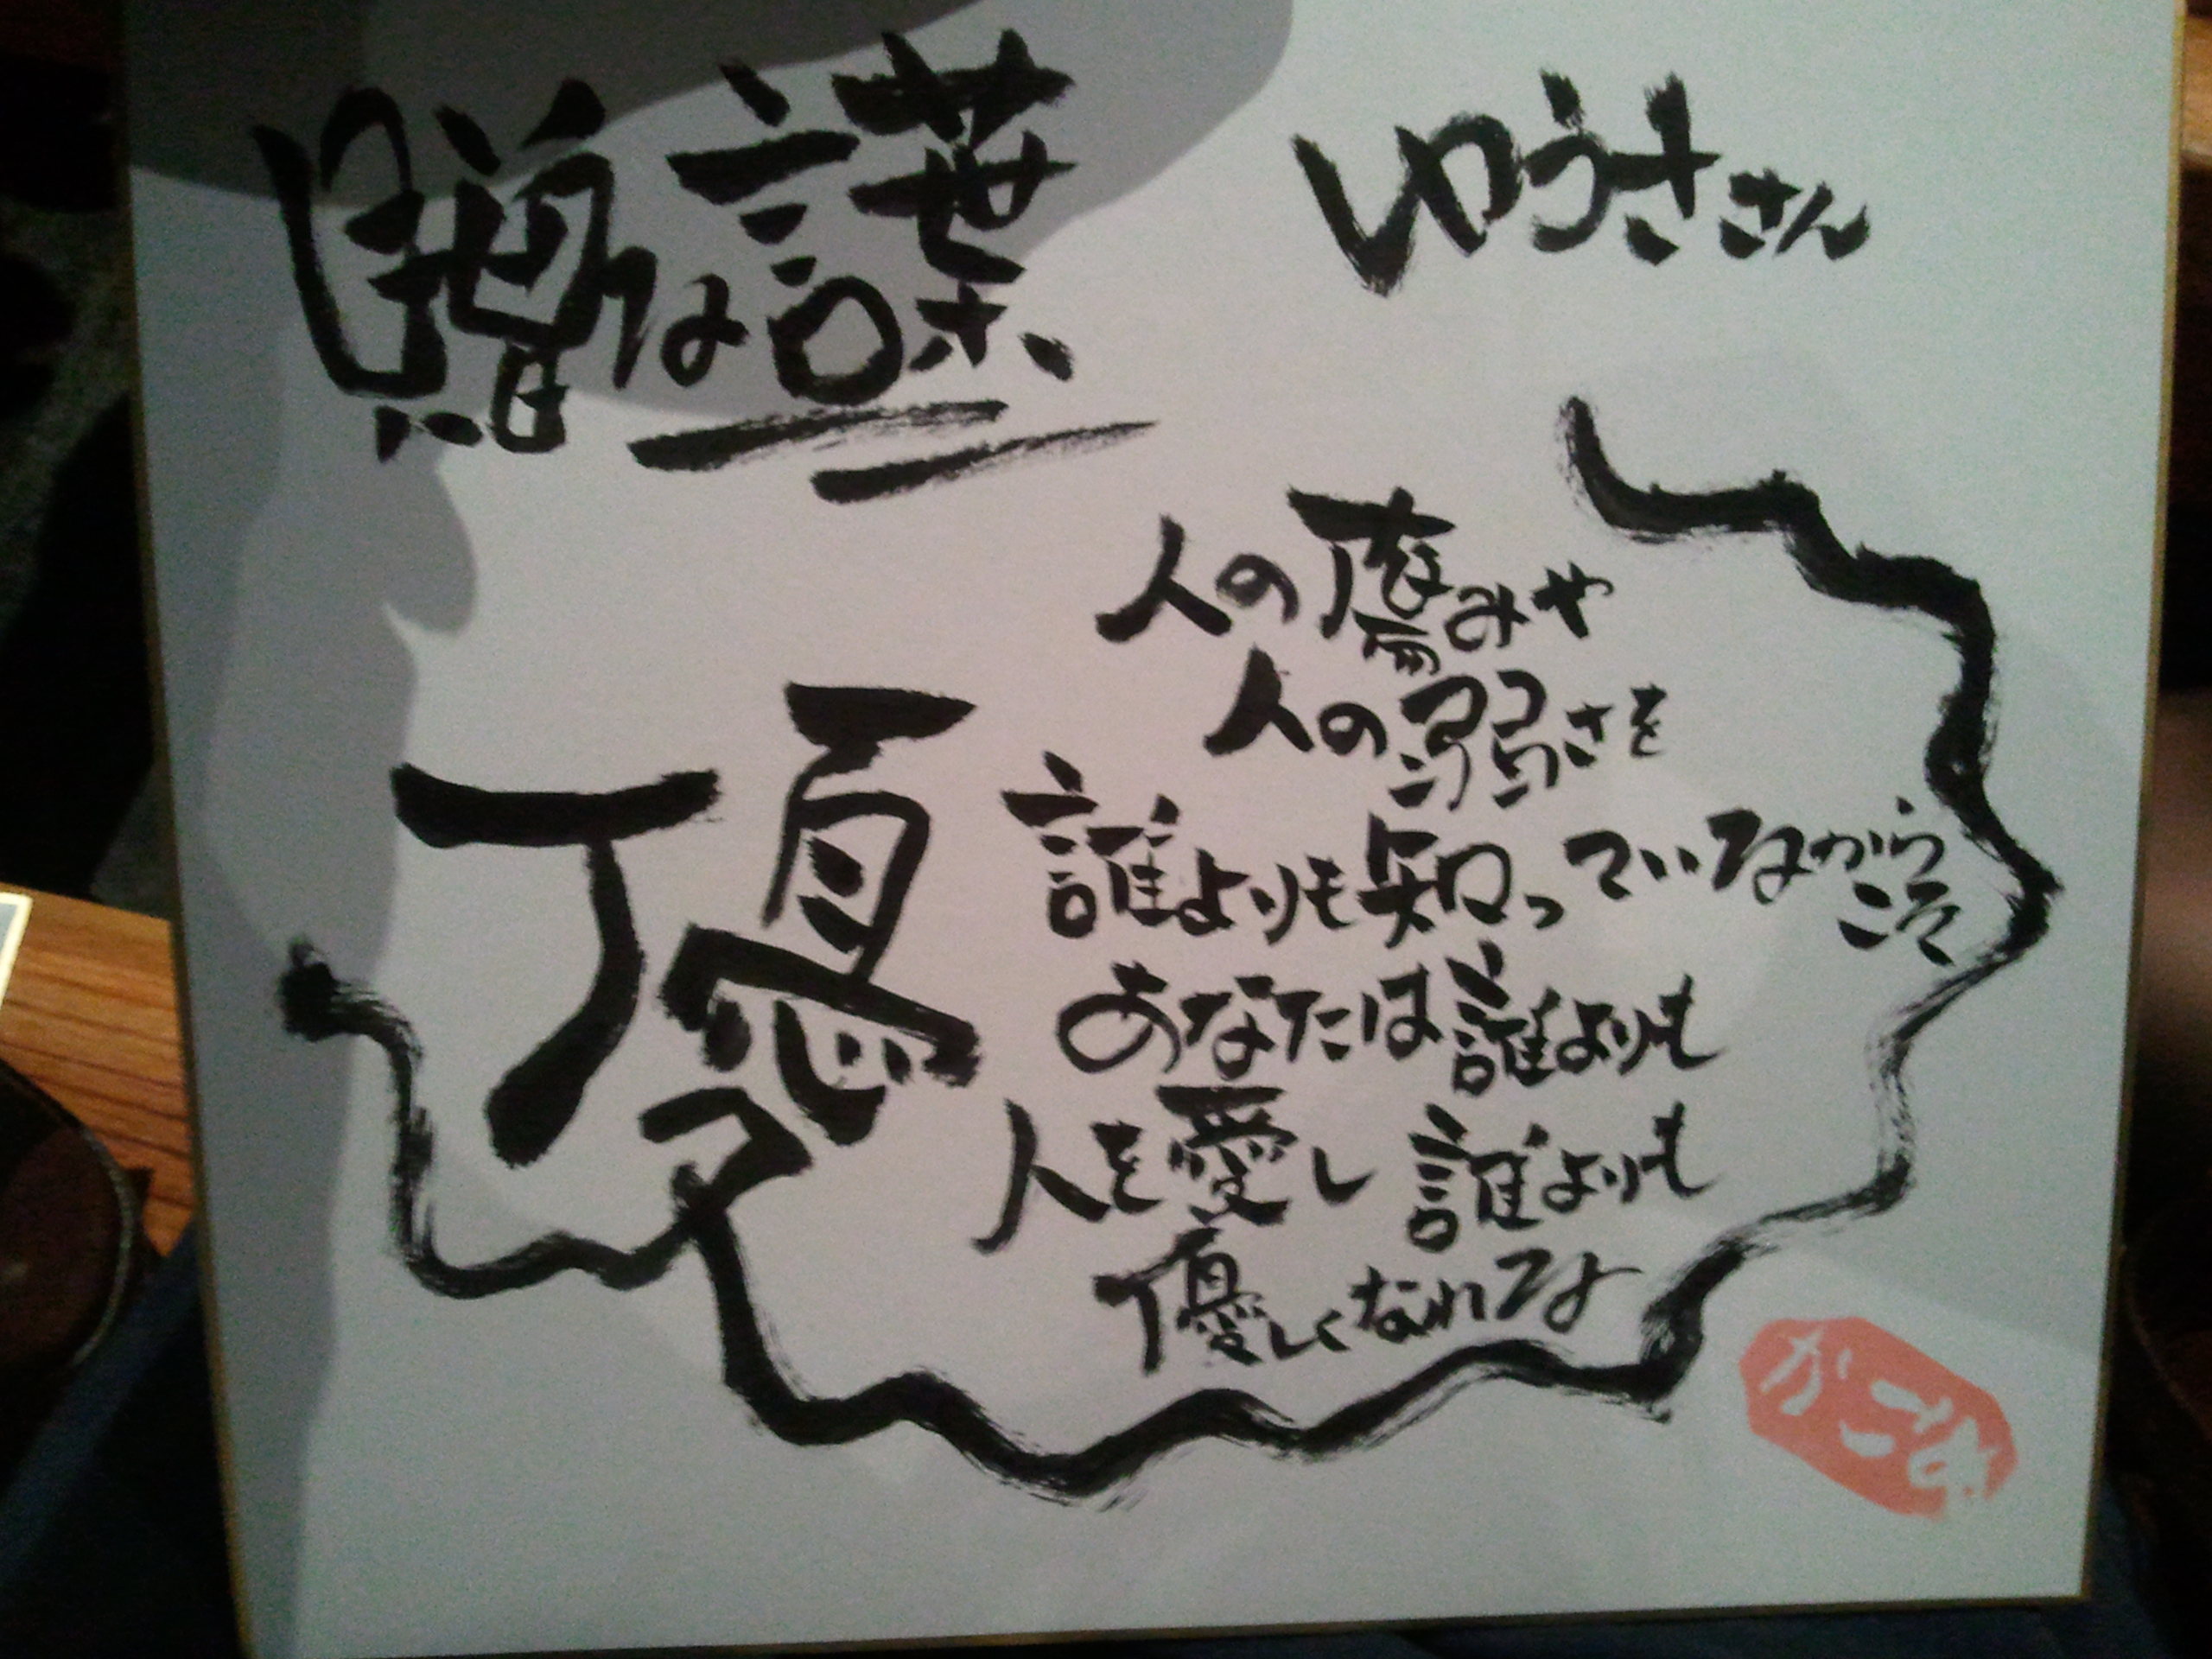 贈る言葉
ゆうささん
優
人の痛みや
人の弱さを
誰よりも知っているから
こそ
あなたは誰よりも
人を愛し 誰よりも
優しくなれるよ